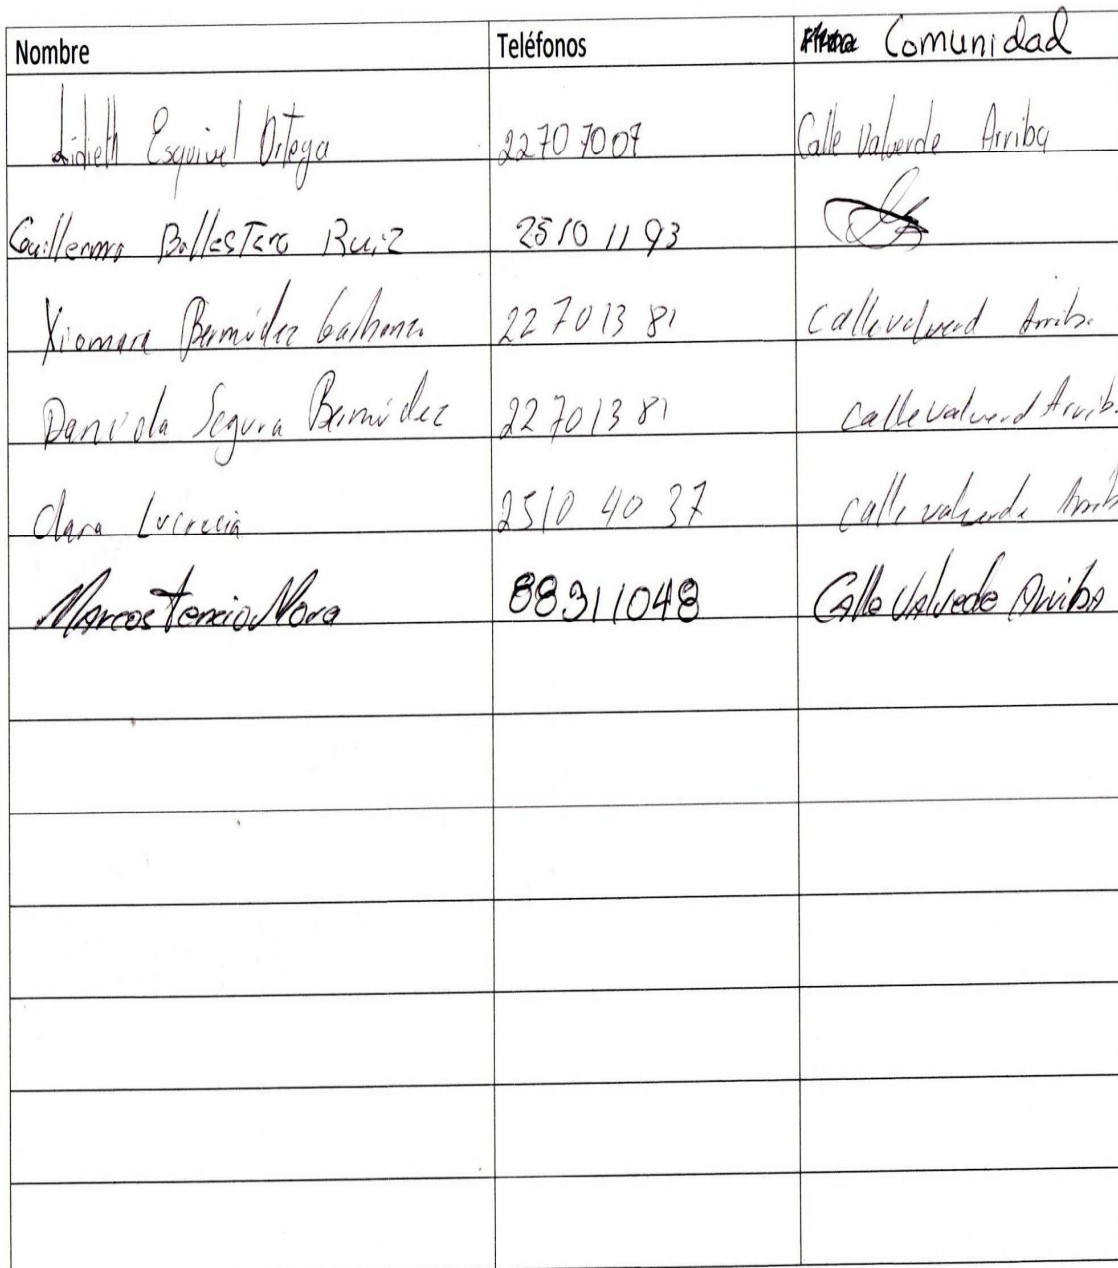 Nombre Teléfonos Comunidad
Lidieth Esquivel Ortega 22707007 Calle Valverde Arriba
Guillermo Ballestero Ruiz 2510 11 93
Xiomara Bermúdez 22 7013 81 calle valverd Arriba
Daniela Segura Bermúdez 22 7013 81 calle valverd Arriba
Clara Lucrecia 2510 40 37 calle valverde Arriba
Marcos Tencio Mora 88311048 Calle Valvede Arriba